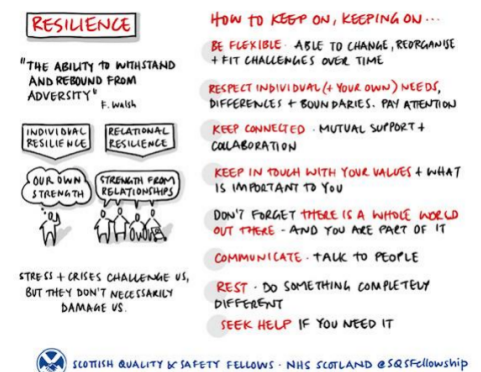 RESILIENCE
"THE ABILITY TO WITHSTAND
AND REBOUND FROM
ADVERSITY"
F. Walsh
INDIVIDUAL
RESILIENCE
RELATIONAL
RESILIENCE
OUR OWN
STRENGTH
STRENGTH FROM
RELATIONSHIPS
STRESS + CRISES CHALLENGE US,
BUT THEY DON'T NECESSARILY
DAMAGE US.
HOW TO KEEP ON, KEEPING ON...
BE FLEXIBLE · ABLE TO CHANGE, REORGANISE
+ FIT CHALLENGES OVER TIME
RESPECT INDIVIDUAL (+ YOUR OWN) NEEDS,
DIFFERENCES + BOUNDARIES. PAY ATTENTION
KEEP CONNECTED · MUTUAL SUPPORT +
COLLABORATION
KEEP IN TOUCH WITH YOUR VALUES + WHAT
IS IMPORTANT TO YOU
DON'T FORGET THERE IS A WHOLE WORLD
OUT THERE - AND YOU ARE PART OF IT
COMMUNICATE · TALK TO PEOPLE
REST · DO SOMETHING COMPLETELY
DIFFERENT
SEEK HELP IF YOU NEED IT
SCOTTISH QUALITY & SAFETY FELLOWS · NHS SCOTLAND @SQSFellowship